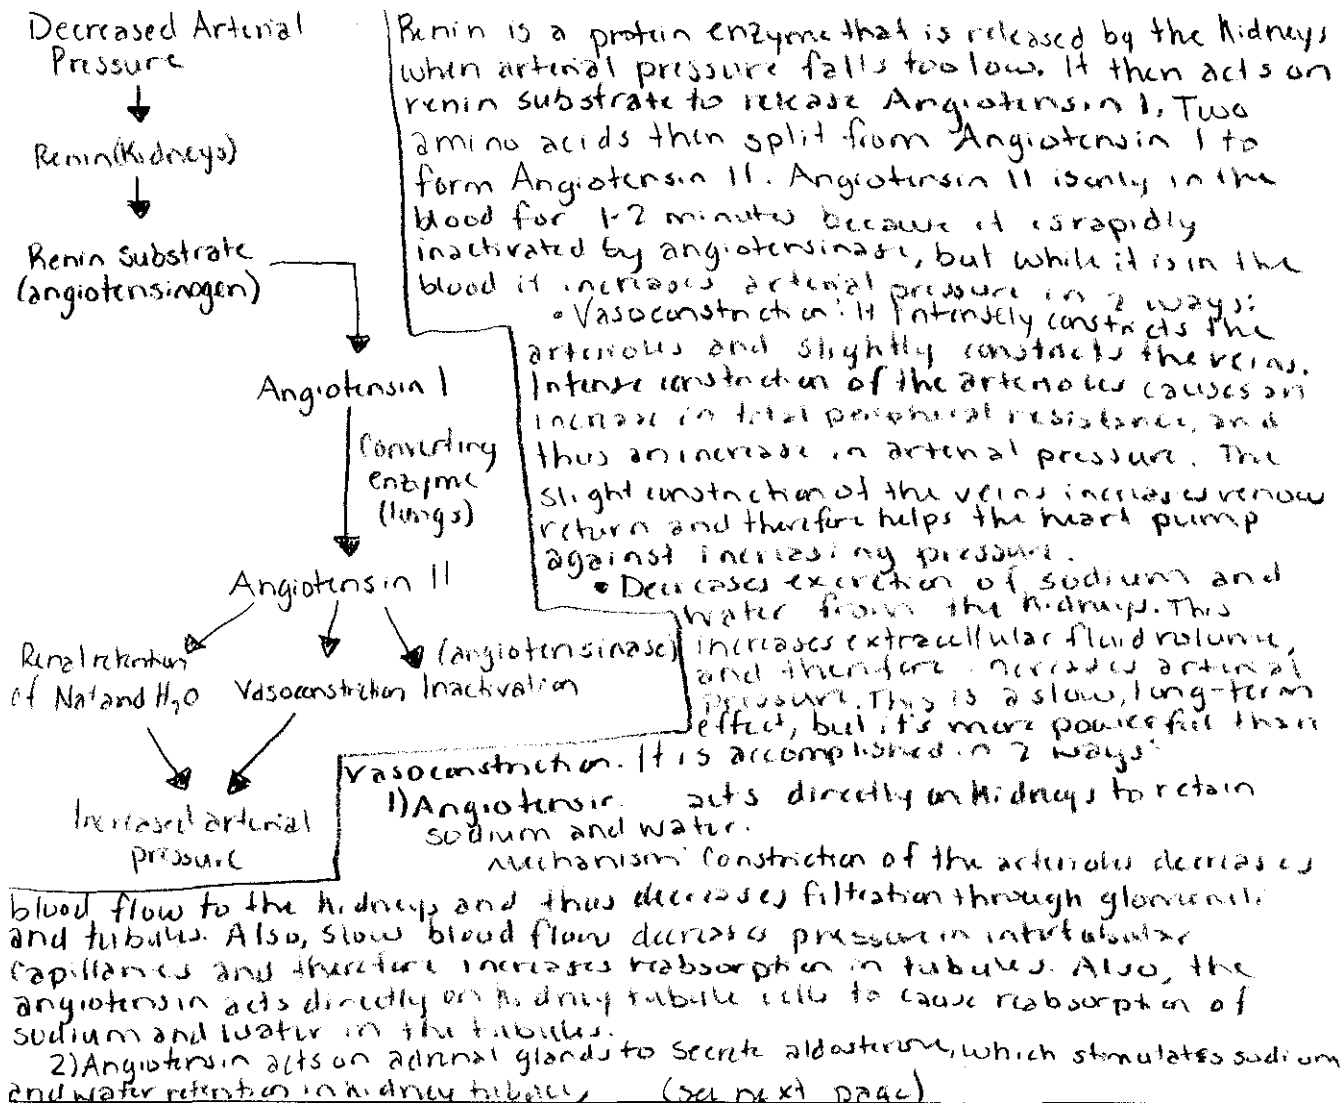 Decreased Arterial
Pressure
Renin (Kidneys)
Renin Substrate
(angiotensinogen)
Angiotensin I
Converting
enzyme
(lungs)
Angiotensin II
Renal retention
of Na+ and H2O
Vasoconstriction
(angiotensinase)
Inactivation
Increased arterial
pressure
Renin is a protein enzyme that is released by the Kidneys
when arterial pressure falls too low. It then acts on
renin substrate to release Angiotensin I. Two
amino acids then split from Angiotensin I to
form Angiotensin II. Angiotensin II is only in the
blood for 1-2 minutes because it is rapidly
inactivated by angiotensinase, but while it is in the
blood it increases arterial pressure in 2 ways:
• Vasoconstriction: It intensely constricts the
arterioles and slightly constricts the veins.
Intense constriction of the arterioles causes an
increase in total peripheral resistance, and
thus an increase in arterial pressure. The
slight constriction of the veins increases venous
return and therefore helps the heart pump
against increasing pressure.
• Decreases excretion of sodium and
water from the kidneys. This
increases extracellular fluid volume,
and therefore increases arterial
pressure. This is a slow, long-term
effect, but it's more powerful than
vasoconstriction. It is accomplished in 2 ways:
1) Angiotensin acts directly on kidneys to retain
sodium and water.
Mechanism: Constriction of the arterioles decreases
blood flow to the kidneys and thus decreases filtration through glomeruli
and tubules. Also, slow blood flow decreases pressure in
capillaries and therefore increases reabsorption in tubules. Also, the
angiotensin acts directly on kidney tubule cells to cause reabsorption of
sodium and water in the tubules.
2) Angiotensin acts on adrenal glands to secrete aldosterone, which stimulates sodium
and water retention in kidney tubules (see next page)